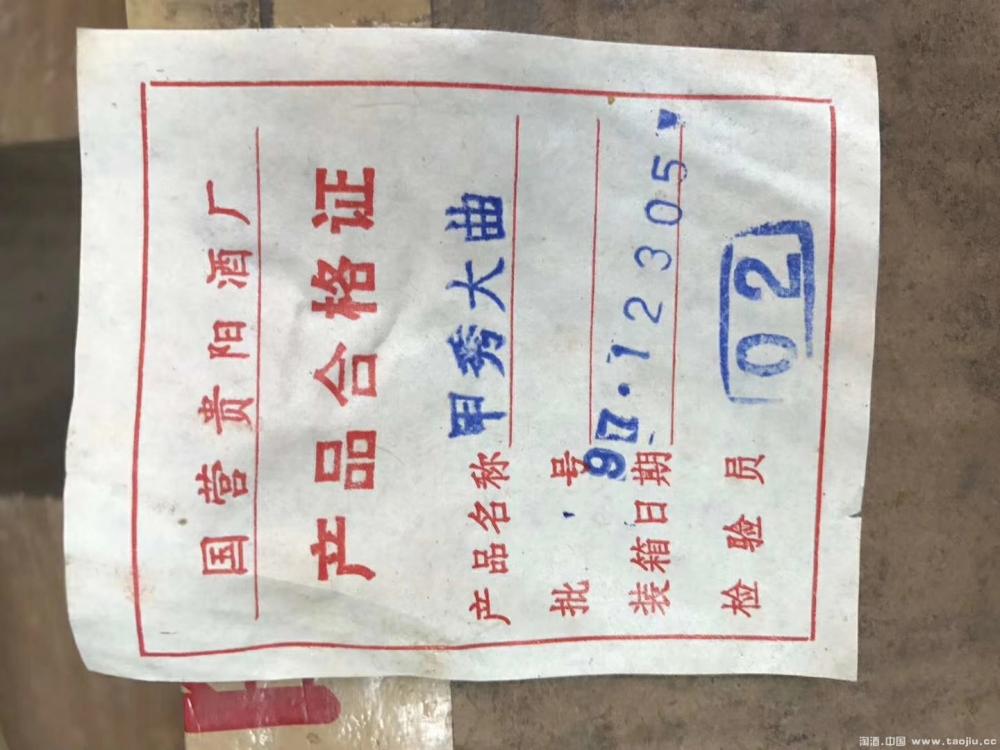 国营贵阳酒厂
产品合格证
产品名称 甲秀大曲
批号
装箱日期 97.12305
检验员 02
淘酒.中国 www.taojiu.cc